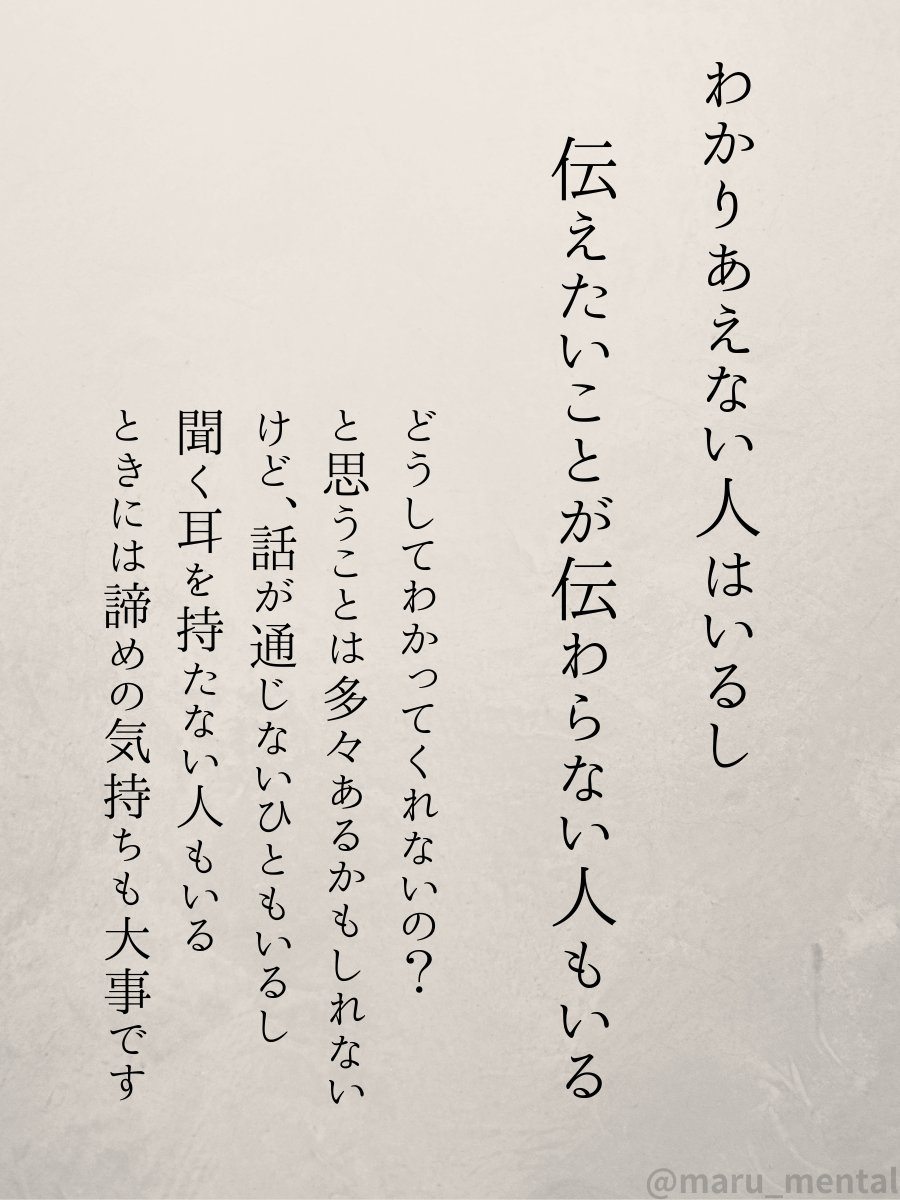 わかりあえない人はいるし
伝えたいことが伝わらない人もいる
どうしてわかってくれないの？
と思うことは多々あるかもしれない
けど、話が通じないひともいるし
聞く耳を持たない人もいる
ときには諦めの気持ちも大事です
@maru_mental